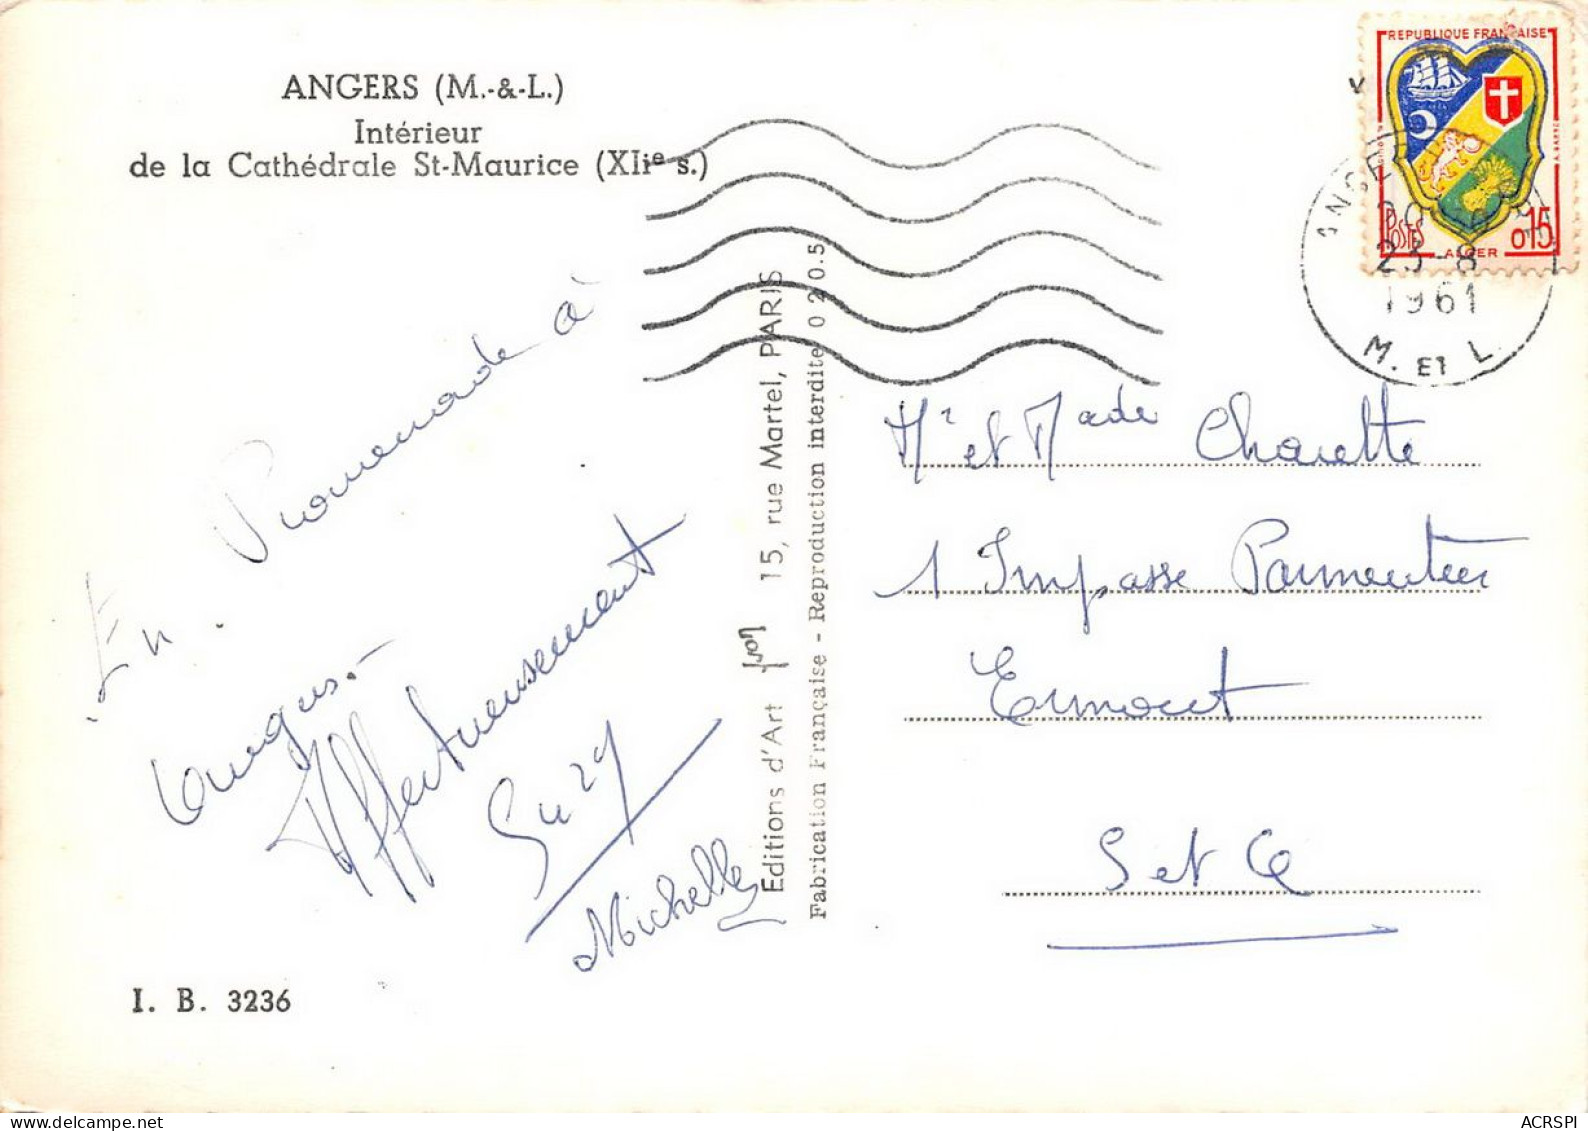 ANGERS (M.-&-L.)
Intérieur
de la Cathédrale St-Maurice (XIIe s.)
En Promenade à
Angers.-
Affectueusement
Suzy
Michelle
I. B. 3236
Editions d'Art yvon 15, rue Martel, PARIS
Fabrication Française - Reproduction interdite
REPUBLIQUE FRANÇAISE
POSTES
0,15
ALGER
23-8
1961
M. ET L.
Mr et Made Charette
1 Impasse Parmentier
Ermont
S et O
ACRSPI